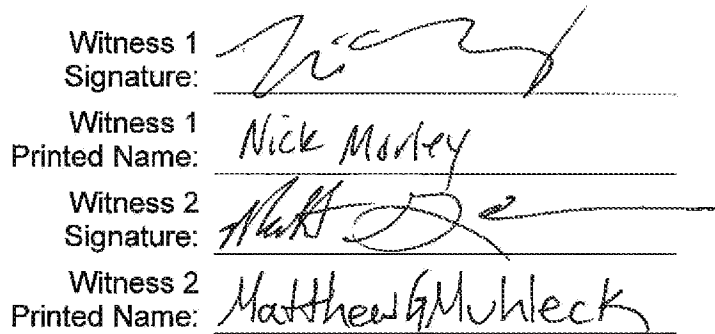 Witness 1
Signature:
Witness 1
Printed Name: Nick Morley
Witness 2
Signature: Matt
Witness 2
Printed Name: Matthew G Muhleck